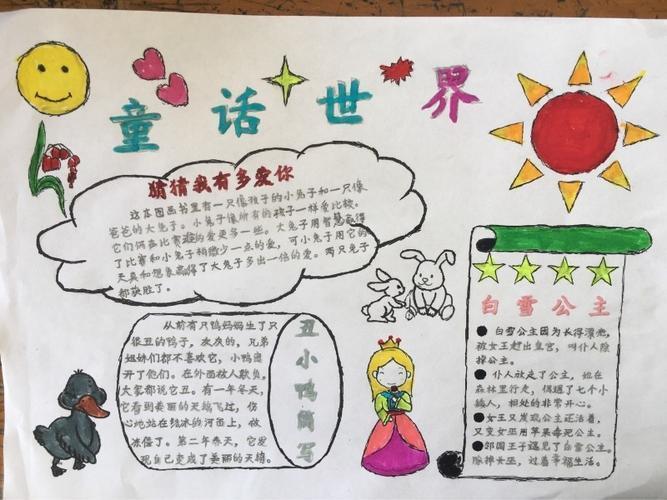 童话世界
猜猜我有多爱你
这本图画书里有一只像孩子的小兔子和一只像
爸爸的大兔子。小兔子像所有的孩子一样爱比较。
它们俩在比赛谁的爱更多一些。大兔子用智慧赢得
了比赛和小兔子稍微少一点的爱，可小兔子用它的
天真和想象赢得了大兔子多出一倍的爱。两只兔子
都获胜了。
丑小鸭简写
从前有只鸭妈妈生了只
很丑的鸭子，灰灰的，兄弟
姐妹们都不喜欢它，小鸭离
开了他们。在外面被人欺负，
大家都说它丑。有一年冬天，
它看到美丽的天鹅飞过，伤
心地站在结冰的河面上，做
冰僵了。第二年春天，它发
现自己变成了美丽的天鹅。
白雪公主
白雪公主因为长得漂亮，
被女王赶出皇宫，叫仆人除
掉公主。
仆人放走了公主，她在
森林里行走，偶遇了七个小
矮人，相处的非常开心。
女王又发现公主还活着，
又变女巫用苹果毒死公主。
邻国王子遇见了白雪公主，
除掉女巫，过着幸福生活。